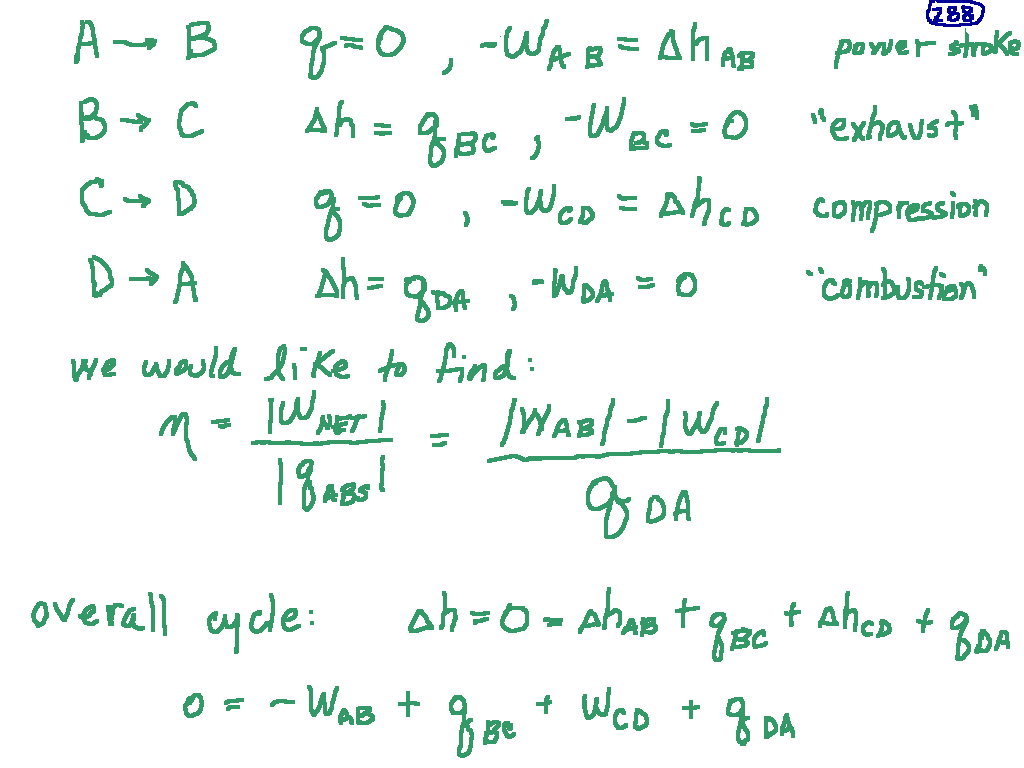 288
A → B q = 0 , -W_AB = Δh_AB power stroke
B → C Δh = q_BC , -W_BC = 0 "exhaust"
C → D q = 0 , -W_CD = Δh_CD compression
D → A Δh = q_DA , -W_DA = 0 "combustion"
we would like to find:
η = |W_NET| / |q_ABS| = |W_AB| - |W_CD| / q_DA
overall cycle: Δh = 0 = Δh_AB + q_BC + Δh_CD + q_DA
0 = -W_AB + q_BC + W_CD + q_DA